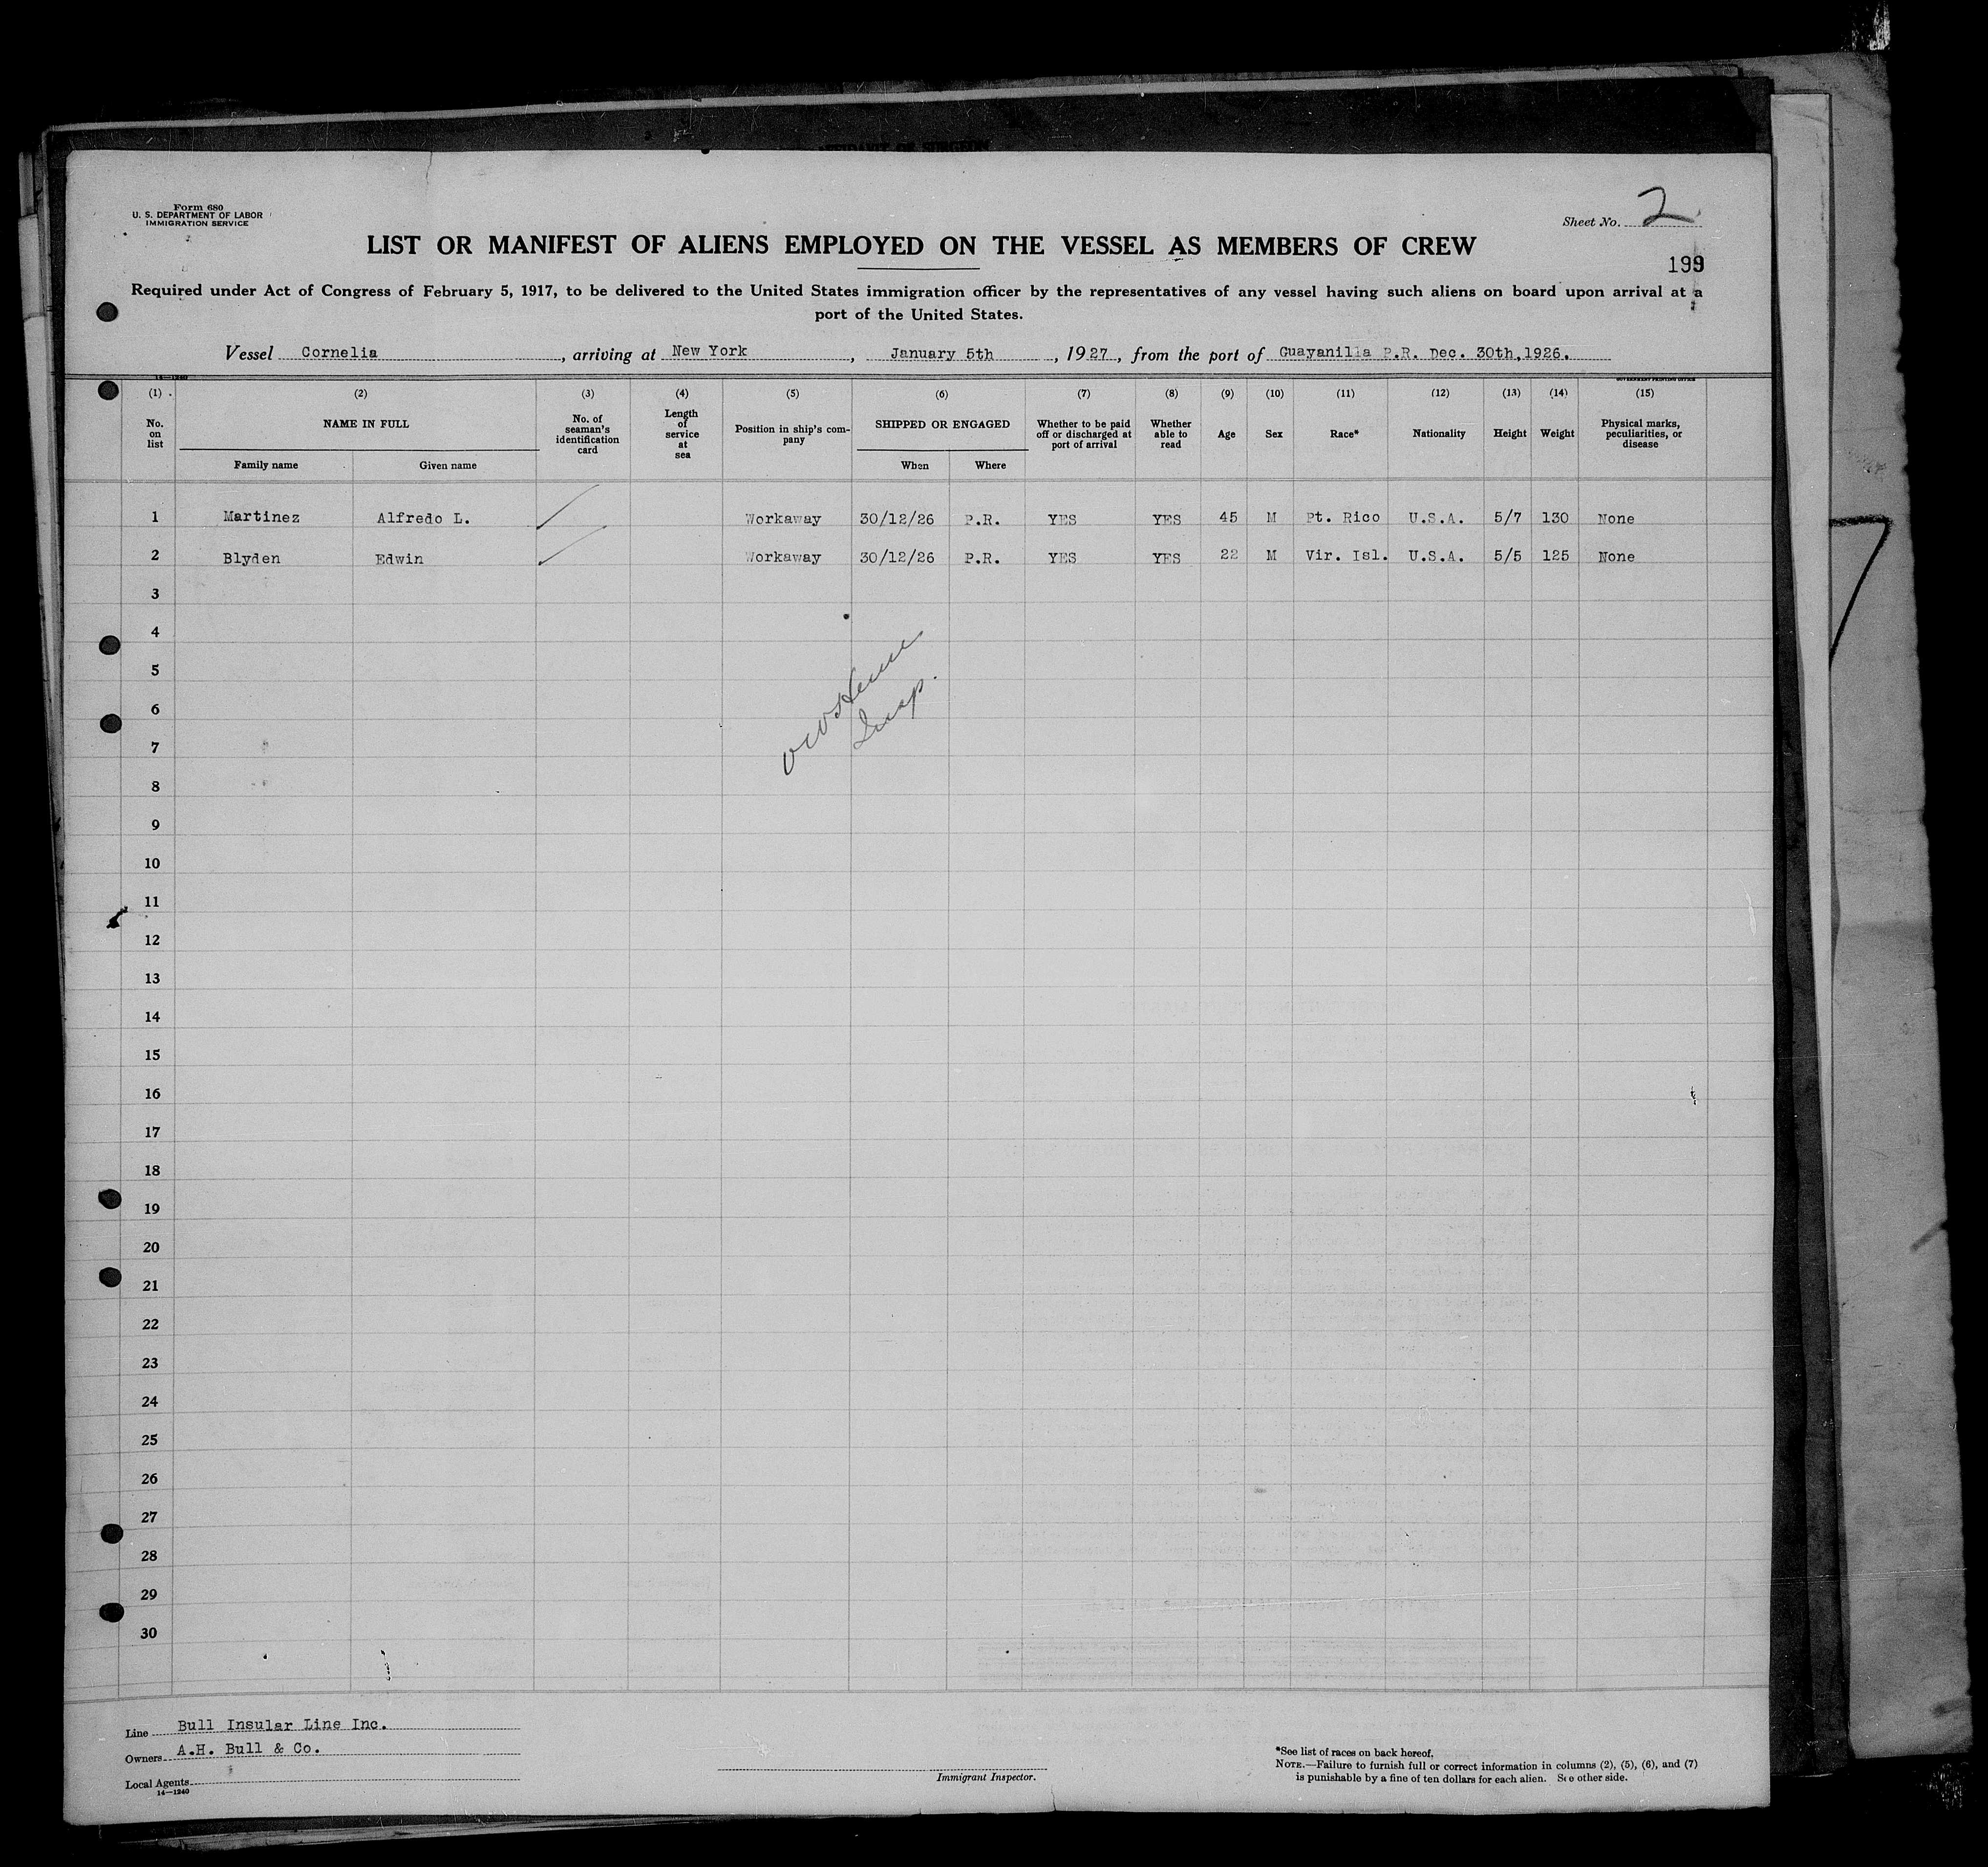 Form 680
U. S. DEPARTMENT OF LABOR
IMMIGRATION SERVICE
Sheet No. 2
LIST OR MANIFEST OF ALIENS EMPLOYED ON THE VESSEL AS MEMBERS OF CREW
199
Required under Act of Congress of February 5, 1917, to be delivered to the United States immigration officer by the representatives of any vessel having such aliens on board upon arrival at a
port of the United States.
Vessel Cornelia, arriving at New York, January 5th, 1927, from the port of Guayanilla P.R. Dec. 30th,1926.
14—1240
GOVERNMENT PRINTING OFFICE
(1) (2) (3) (4) (5) (6) (7) (8) (9) (10) (11) (12) (13) (14) (15)
No. on list NAME IN FULL Family name Given name No. of seaman's identification card Length of service at sea Position in ship's company SHIPPED OR ENGAGED When Where Whether to be paid off or discharged at port of arrival Whether able to read Age Sex Race* Nationality Height Weight Physical marks, peculiarities, or disease
1 Martinez Alfredo L. Workaway 30/12/26 P.R. YES YES 45 M Pt. Rico U.S.A. 5/7 130 None
2 Blyden Edwin Workaway 30/12/26 P.R. YES YES 22 M Vir. Isl. U.S.A. 5/5 125 None
3
4
5
6
7
Insp.
8
9
10
11
12
13
14
15
16
17
18
19
20
21
22
23
24
25
26
27
28
29
30
Line Bull Insular Line Inc.
Owners A.H. Bull & Co.
Local Agents
14—1240
Immigrant Inspector.
*See list of races on back hereof.
NOTE.—Failure to furnish full or correct information in columns (2), (5), (6), and (7)
is punishable by a fine of ten dollars for each alien. See other side.